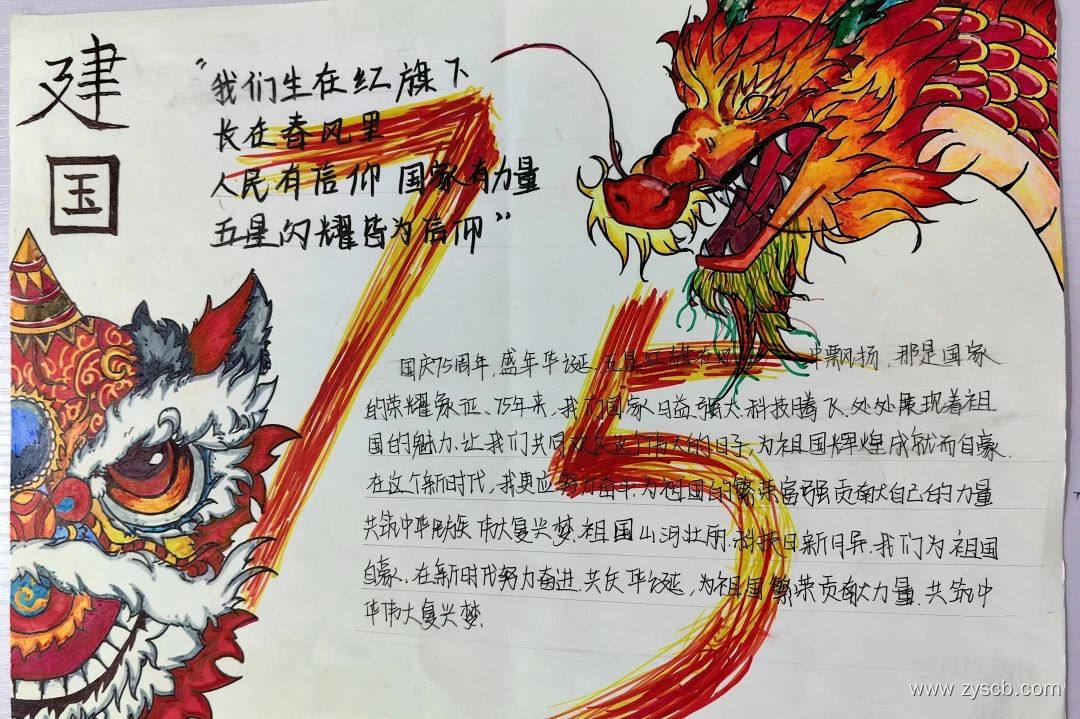 建国
“我们生在红旗下
长在春风里
人民有信仰 国家有力量
五星闪耀皆为信仰”
75
国庆75周年,盛年华诞.五星红旗在 中飘扬.那是国家
的荣耀象征、75年来,我们国家日益强大.科技腾飞.处处展现着祖
国的魅力.让我们共同欢庆这个伟大的日子,为祖国辉煌成就而自豪.
在这个新时代,我更应努力奋斗.为祖国的繁荣富强贡献自己的力量
共筑中华民族伟大复兴梦.祖国山河壮丽.科技日新月异.我们为祖国
自豪.在新时代努力奋进.共庆华诞,为祖国繁荣贡献力量.共筑中
华伟大复兴梦.
www.zyscb.com